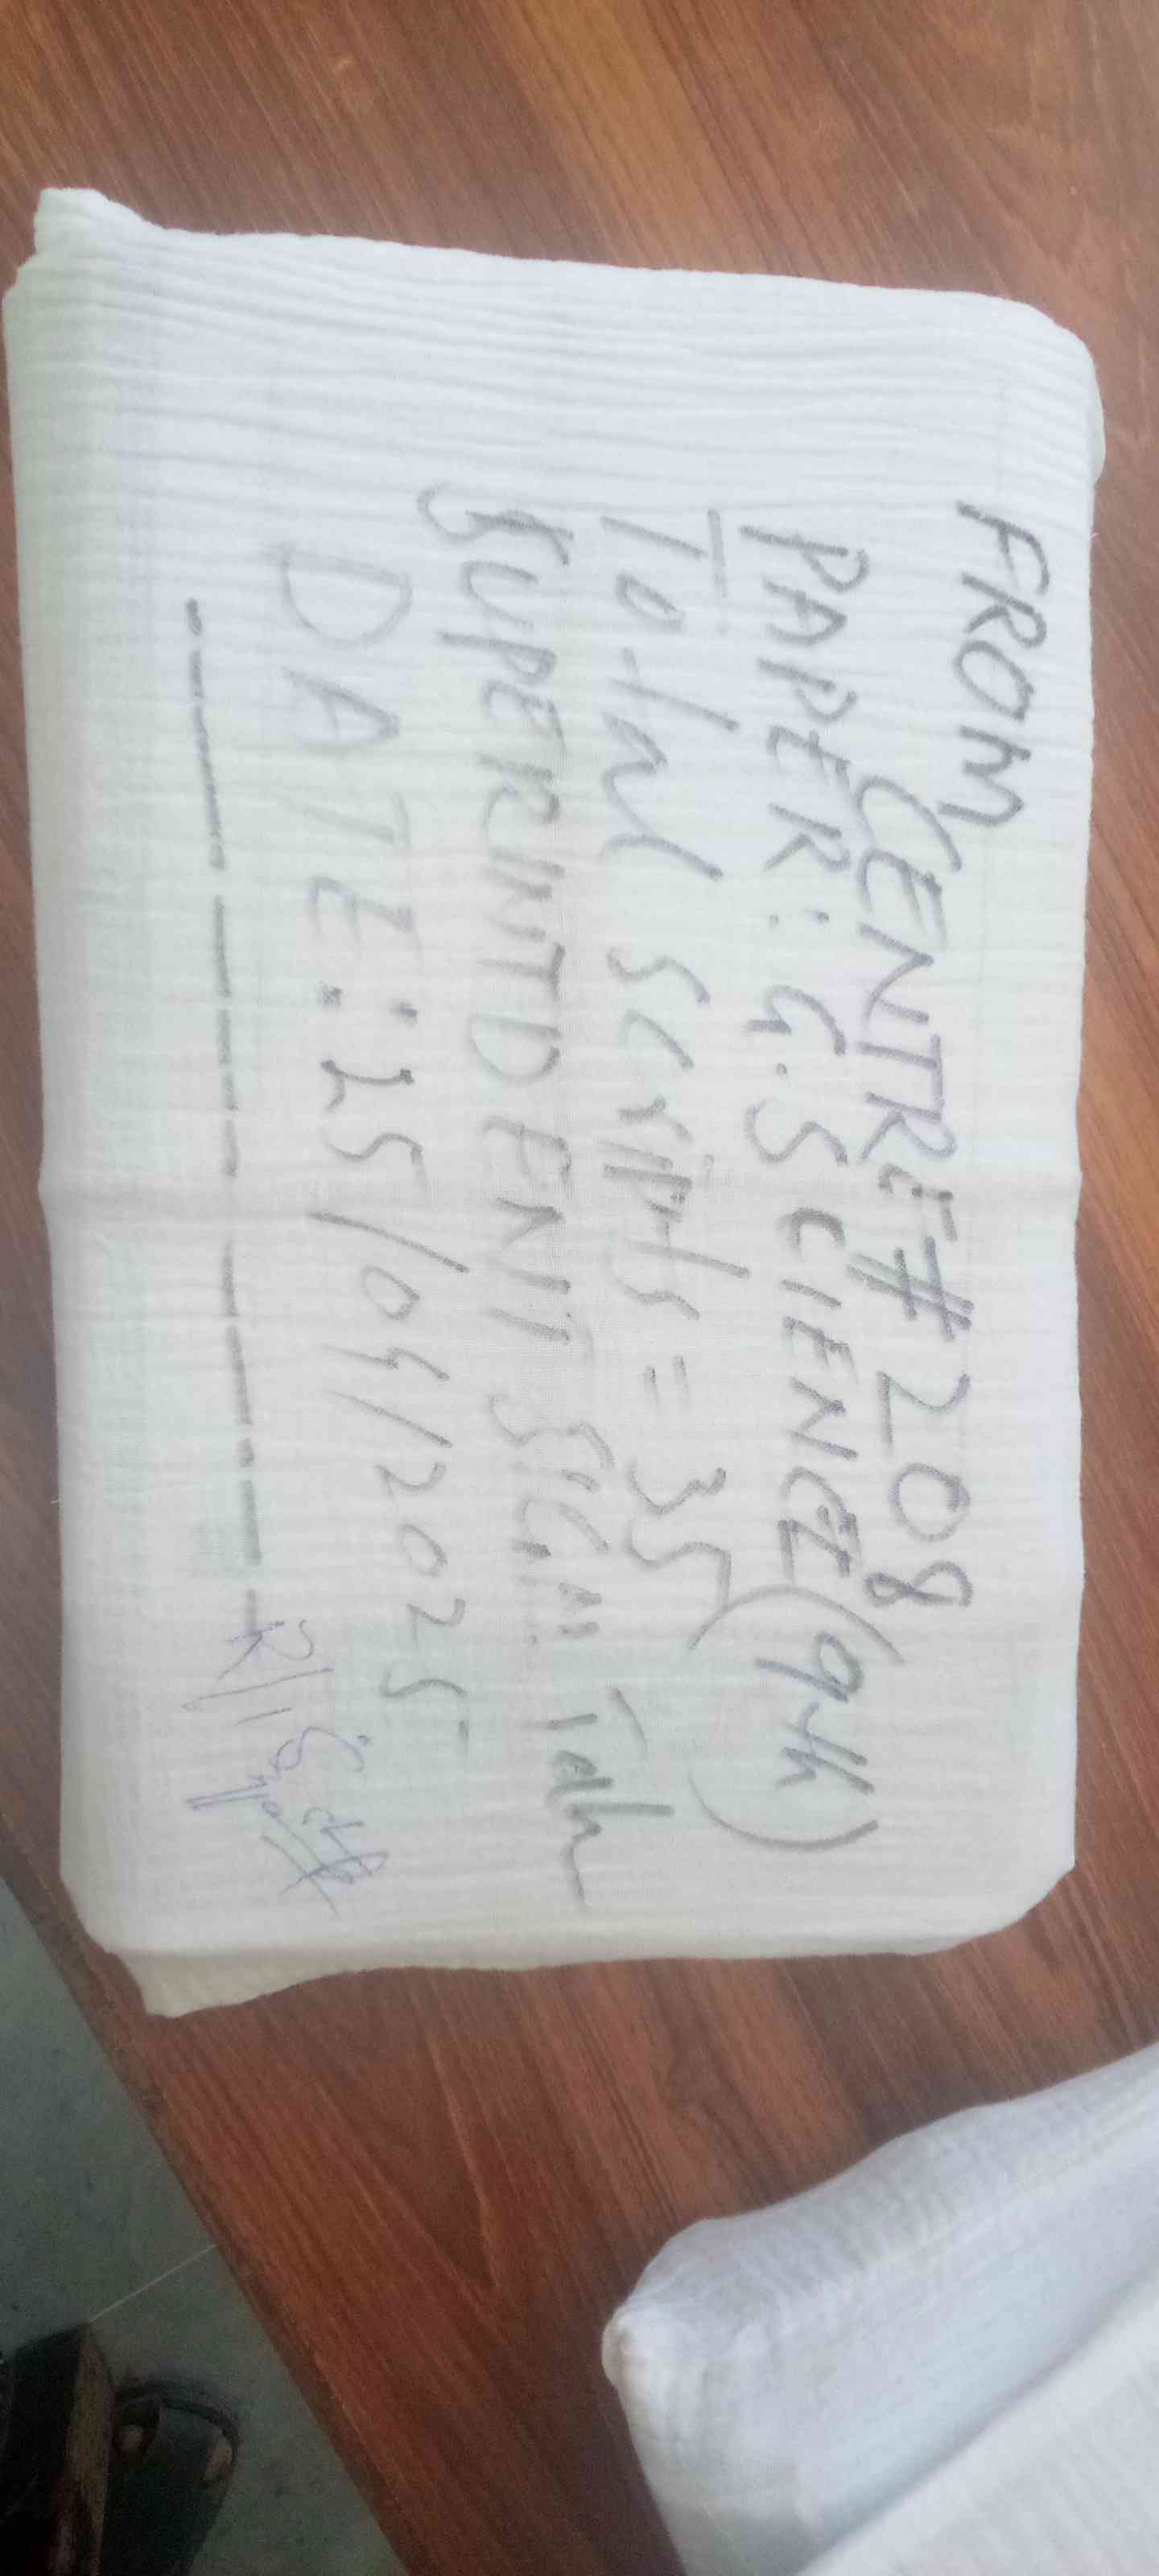 FROM
CENTRE # 208
PAPER: G.SCIENCE (9th)
Total Scripts = 35
SUPERINTDENT SIGN
DATE: 25/04/2025